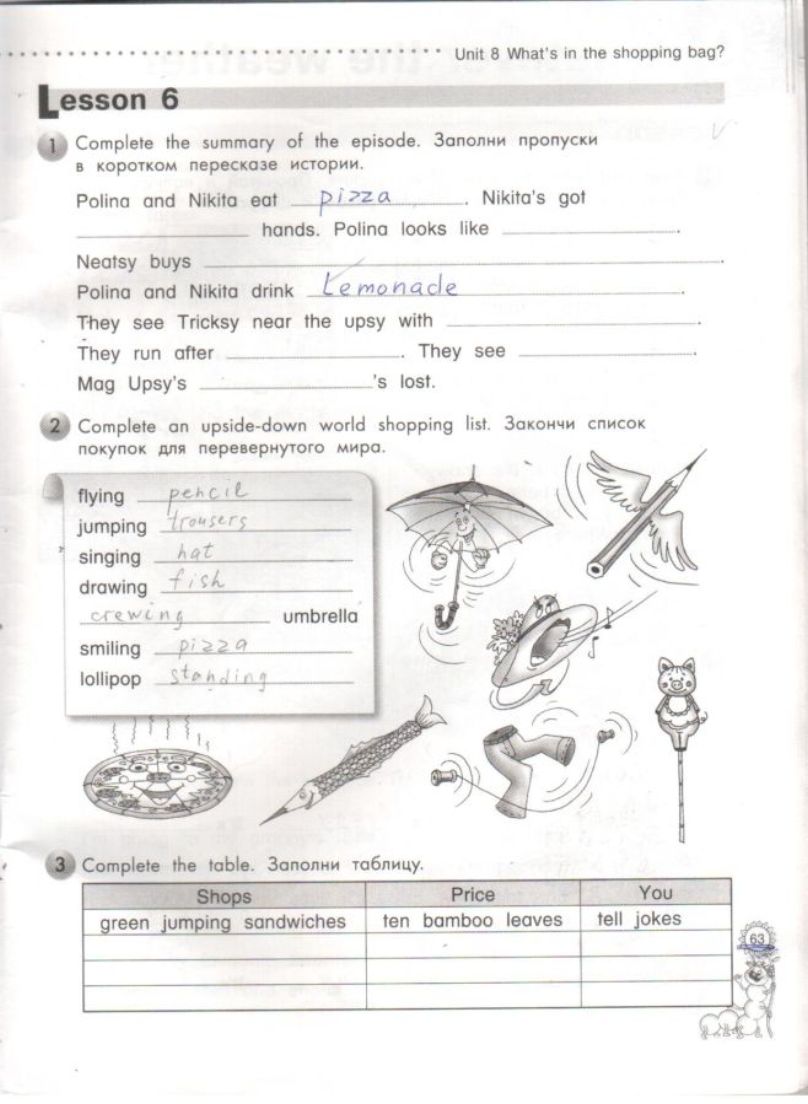 Unit 8 What's in the shopping bag?
Lesson 6
1 Complete the summary of the episode. Заполни пропуски
в коротком пересказе истории.
Polina and Nikita eat pizza. Nikita's got
hands. Polina looks like .
Neatsy buys .
Polina and Nikita drink Lemonade.
They see Tricksy near the upsy with .
They run after . They see .
Mag Upsy's 's lost.
2 Complete an upside-down world shopping list. Закончи список
покупок для перевернутого мира.
flying pencil
jumping trousers
singing hat
drawing fish
crewing umbrella
smiling pizza
lollipop standing
3 Complete the table. Заполни таблицу.
Shops Price You
green jumping sandwiches ten bamboo leaves tell jokes
63